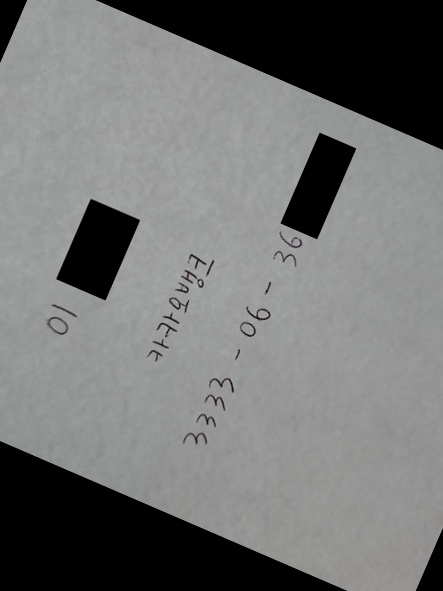 01
카카오뱅크
3333-06-36